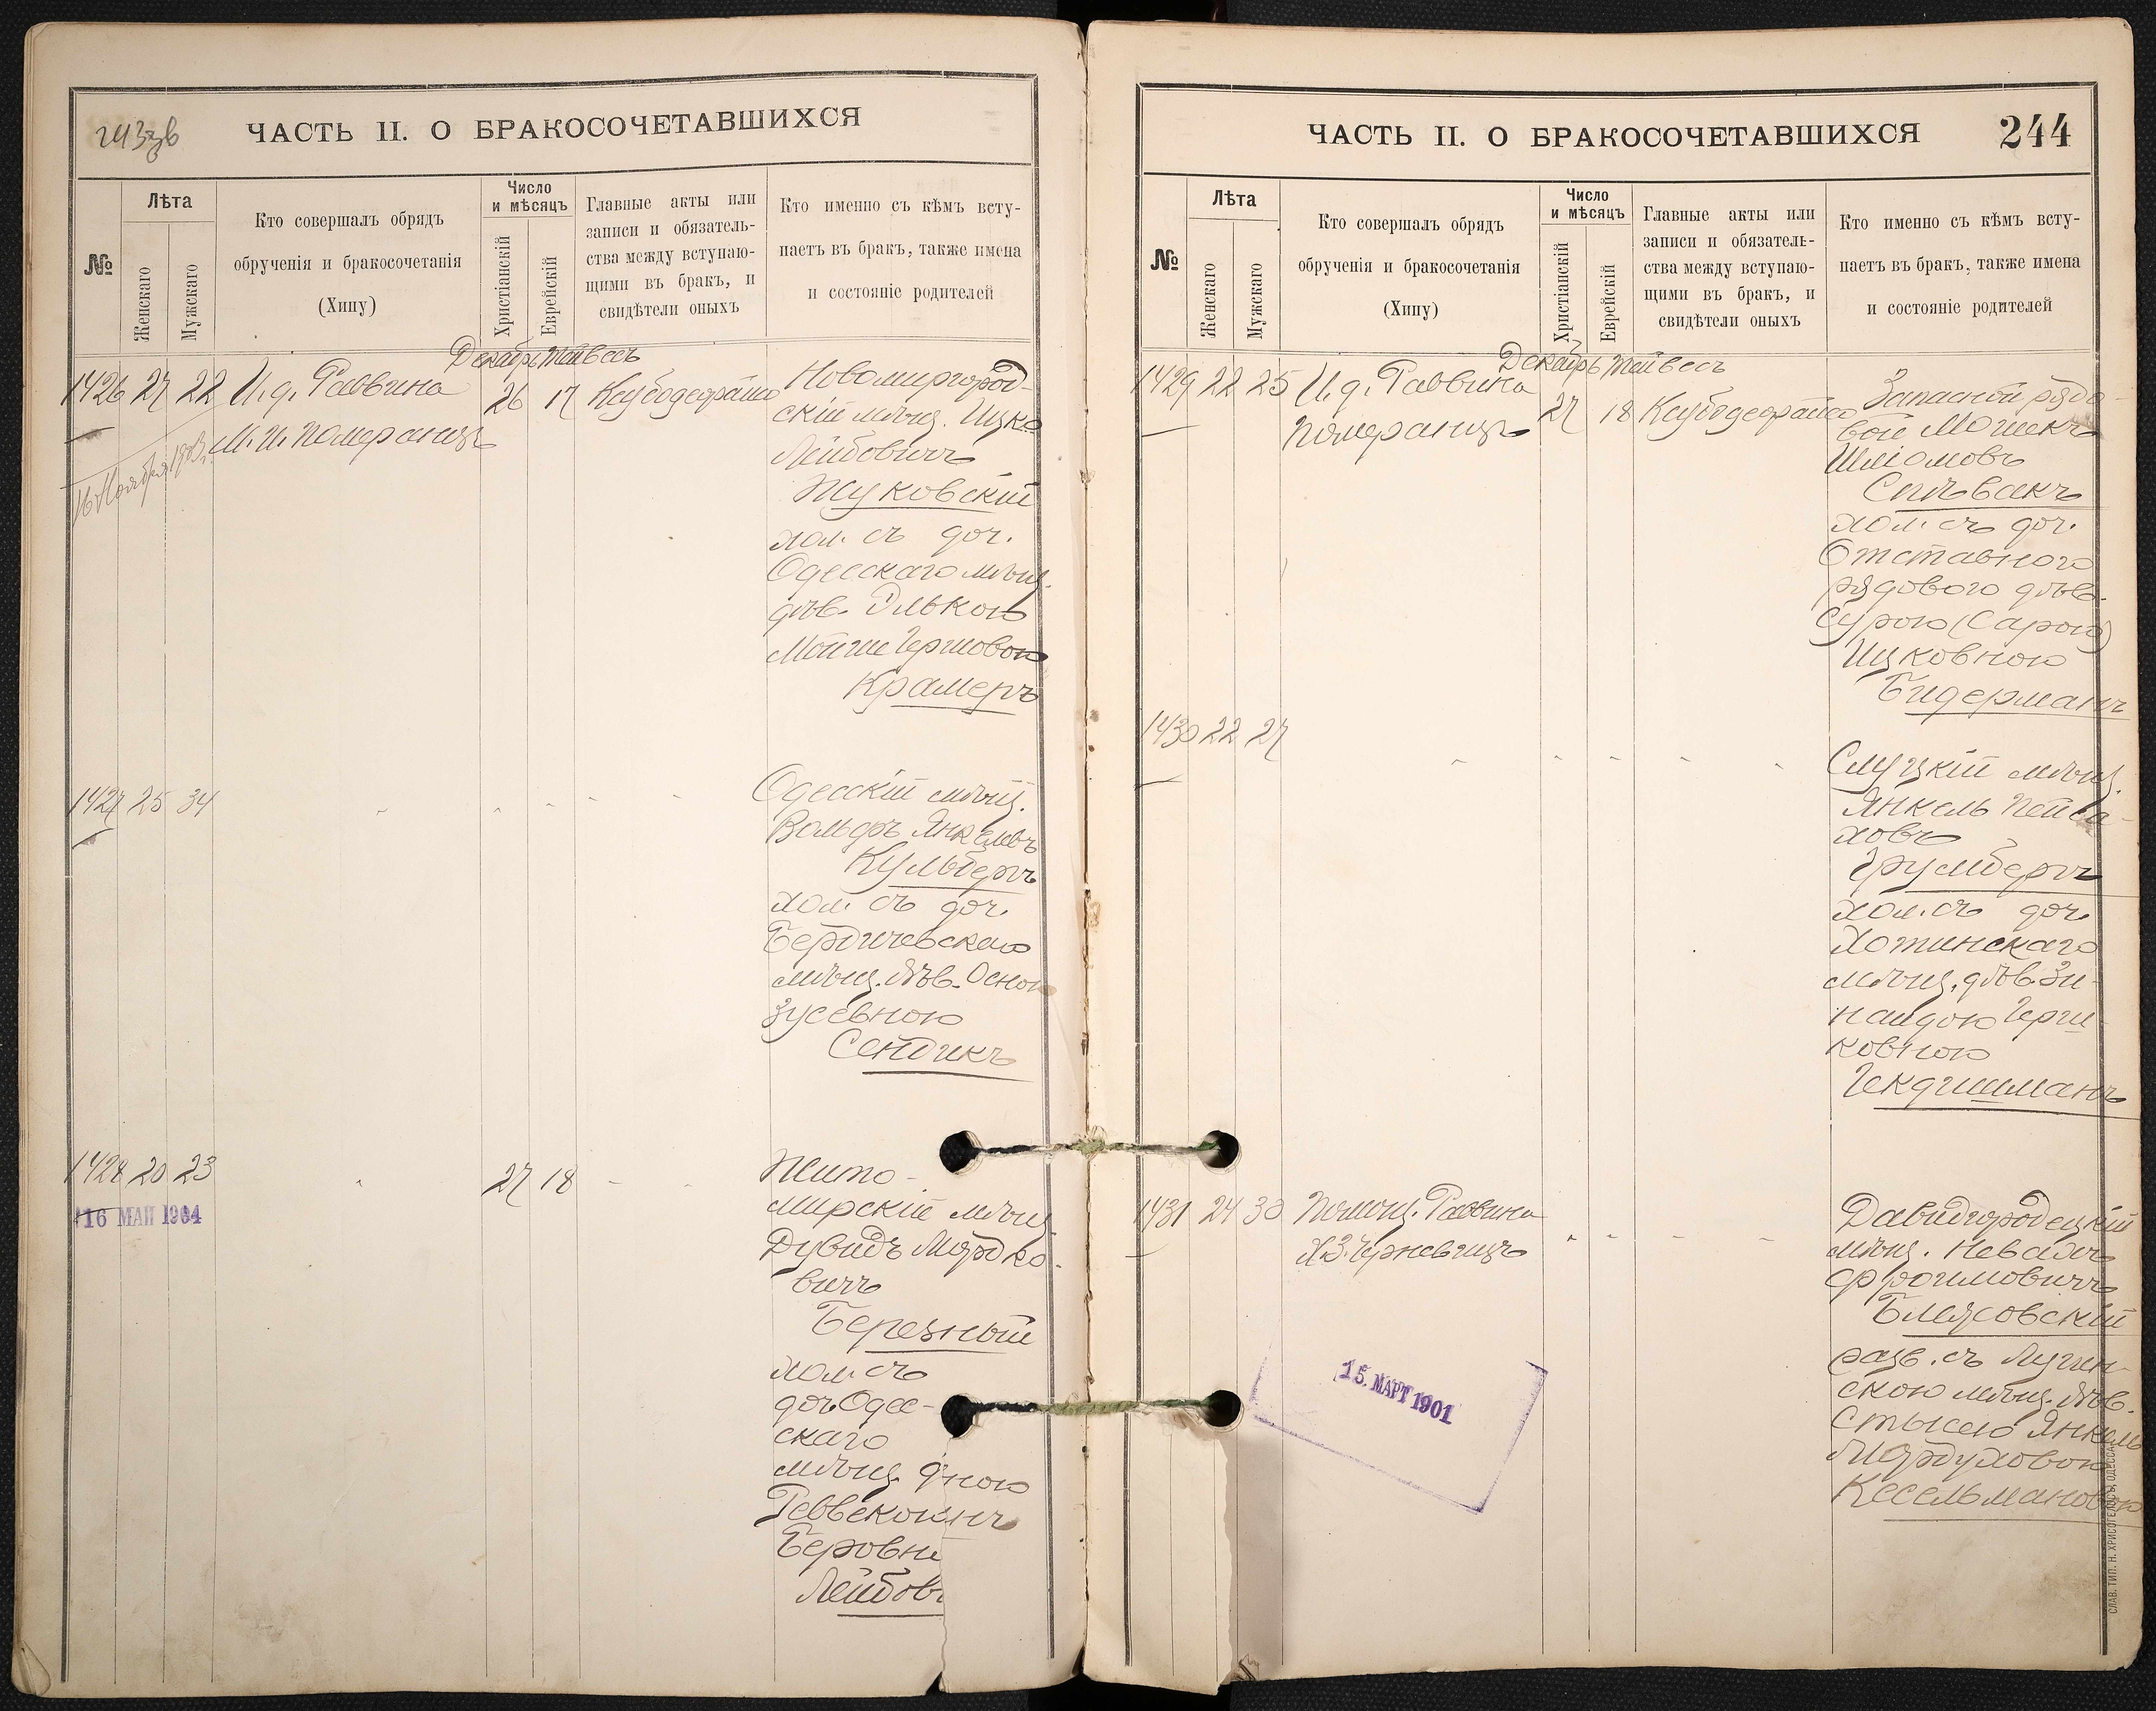 243 об
ЧАСТЬ II. О БРАКОСОЧЕТАВШИХСЯ
№
Лѣта
Женскаго
Мужскаго
Кто совершалъ обрядъ
обрученія и бракосочетанія
(Хипу)
Число
и мѣсяцъ
Христіанскій
Еврейскій
Главные акты или
записи и обязатель-
ства между вступаю-
щими въ бракъ, и
свидѣтели оныхъ
Кто именно съ кѣмъ всту-
паетъ въ бракъ, также имена
и состояніе родителей
Декабрь Тайвесъ
1426 27 22 И. д. Раввина 26 17
М. И. Померанцъ
16 Ноября 1903 г.
Новомиргород-
скій мѣщ. Ицко
Лейбовичъ
Жуковскій
хол. съ доч.
Одесскаго мѣщ.
дѣв. Элькою
Мойше Гершовою
Крамеръ
1427 25 34 " " " " "
Одесскій мѣщ.
Вольфъ Янкелевъ
Кульбергъ
хол. съ доч.
Бердичевскаго
мѣщ. дѣв. Осною
Зусевною
Сендикъ
1428 20 23 " 27 18 " "
16 МАЙ 1904
Жито-
мирскій мѣщ.
Дувидъ Мордко-
вичъ
Березный
хол. съ
доч. Одес-
скаго
мѣщ.
Реввекою
Беровн
Лейбов
ЧАСТЬ II. О БРАКОСОЧЕТАВШИХСЯ 244
№
Лѣта
Женскаго
Мужскаго
Кто совершалъ обрядъ
обрученія и бракосочетанія
(Хипу)
Число
и мѣсяцъ
Христіанскій
Еврейскій
Главные акты или
записи и обязатель-
ства между вступаю-
щими въ бракъ, и
свидѣтели оныхъ
Кто именно съ кѣмъ всту-
паетъ въ бракъ, также имена
и состояніе родителей
Декабрь Тайвесъ
1429 22 25 И. д. Раввина 27 18
Померанцъ
Запасной рядо-
вой Мошекъ
Шліомовъ
Спѣвакъ
хол. съ доч.
Отставного
рядового дѣв.
Сурою (Сарою)
Ицковною
Бидерманъ
1430 22 27 " " " " "
Слуцкій мѣщ.
Янкель Пейса-
ховъ
Грумбергъ
хол. съ доч.
Хотинскаго
мѣщ. дѣв. Зи-
наидою Герш-
ковною
Гекдишманъ
1431 24 30 Помощ. Раввина " " " "
Х. З. Черневицъ
15. МАРТ 1901
Давидгородецкій
мѣщ. Невахъ
Фроимовичъ
Блясовскій
разв. съ
скою мѣщ. дѣв.
Стысею Янкель
Мордуховою
Кесельмановою
СЛАВ. ТИП. Н. ХРИСОГЕЛОСЪ, ОДЕССА